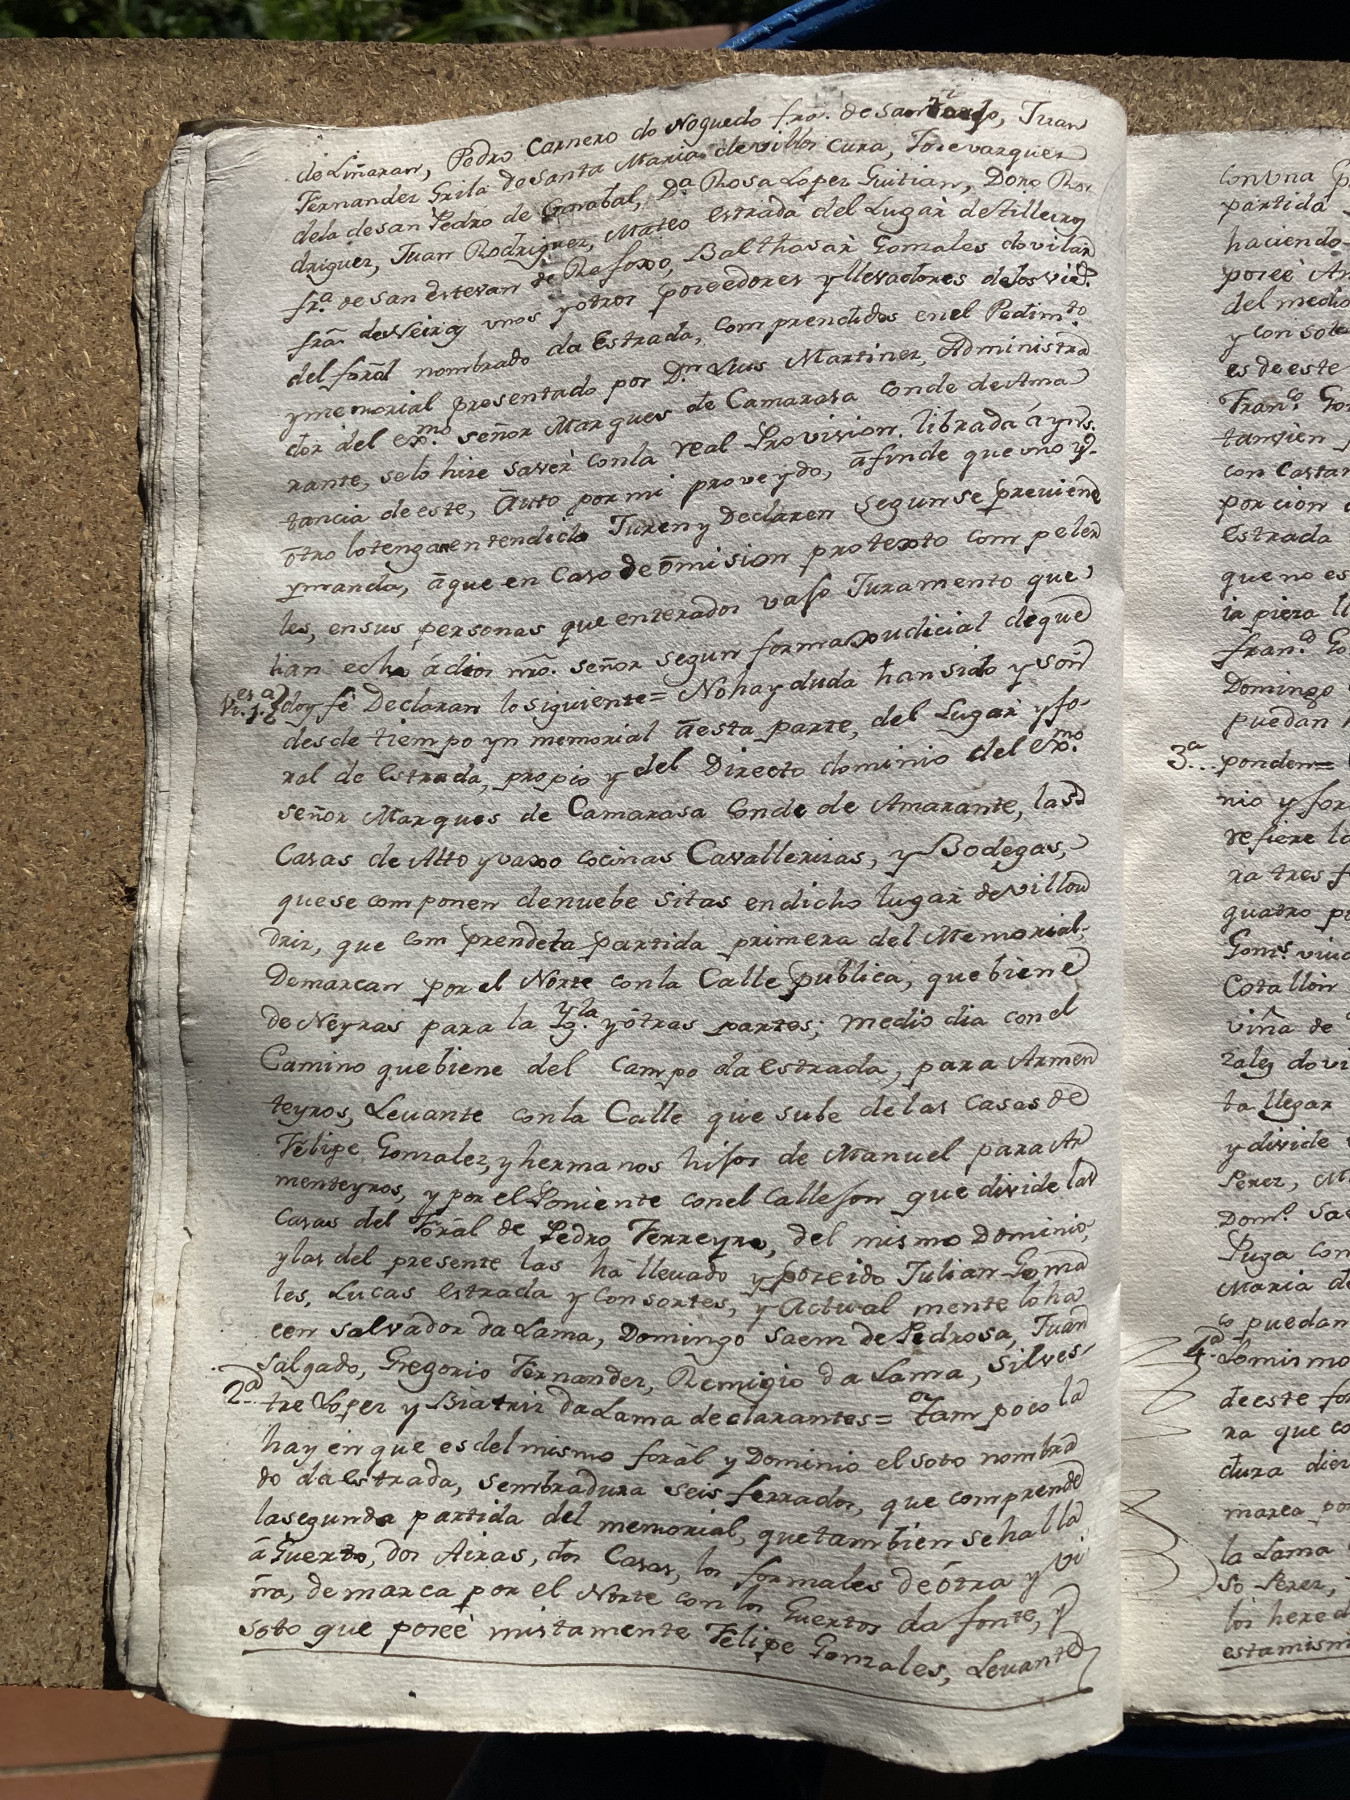 de Liñaran, Pedro Carnero do Noguedo frã. de Santiago, Juan
Fernandez Grila de Santa Maria de villor cura, Jose vazquez
dela de san Pedro de Canabal, D.ª Rosa Lopez Guitian, Dono Ro
driguez, Juan Rodriguez, Mateo estrada del Lugar de tilleiros
fr.ª de san estevan de Refoxo, Balthasar Gonzales do vilar
frã. de Neiras unos y otros poseedores y llevadores delos vie.s
del forãl nombrado da Estrada, comprendidos en el Pedim.to
y memorial presentado por D.n Luis Martinez, Administra
dor del ex.mo señor Marques de Camarasa conde de Ama
rante, selo hize saver conla real Provision librada á yns.
tancia de este, Auto por mi proveydo, áfinde que uno y
otro lo tengan entendido Juren y Declaren segun se previene
y manda, áque en Caso de ómision protexto compeler
les, en sus personas que enterados vaxo Juramento que
han echo á dios nrõ. señor segun forma xudicial de que
doy fé Declaran lo siguiente = No hay duda han sido y són
desde tiempo yn memorial áesta parte, del Lugar y fo-
ral de Estrada, propio y del Directo dominio del ex.mo
señor Marques de Camarasa Conde de Amarante, las
Casas de Alto y vaxo cocinas Cavallerizas, y Bodegas,
que se componen denuebe sitas endicho lugar de villou
driz, que comprendeta partida primera del Memorial,
Demarcan por el Norte conla Calle publica, que biene
de Neyras para la Ygla. y ótras partes; medio dia con el
Camino que biene del Campo da Estrada, para Armen
teyros, Levante conla Calle que sube delas Casas de
Felipe Gonzalez, y hermanos hijos de Manuel para Ar
menteyros, y por el Poniente conel Callejon que divide las
Casas del Forãl de Pedro Ferreyro, del mismo Dominio,
y las del presente las há llevado y poseido Julian Gonza
les, Lucas estrada y Consortes, y Actual mente lo ha
cen Salvador da Lama, Domingo saem de Pedrosa, Juan
Salgado, Gregorio Fernandez, Remigio da Lama, Silves
2.ª tre Lopez y Biatriz da Lama declarantes = tam poco la
hay én que es del mismo forál y Dominio el soto nombra
do da Estrada, sembradura seis ferrados, que comprende
lasegunda partida del memorial, que tambien sehalla
á Guerto, dos Airas, dos Casas, los formales deótra y vi
ña, demarca por el Norte con los Guertos da fonte, y
soto que poseé mistamente Felipe Gonzales, Levante
con una
partida
haciendo
poseé
del medio
y con soto
es de este
Fran.co
tanvien
con Castan
porcion
Estrada
que no es
ia pieza
fran.co
Domingo
puedan
3.ª ponden =
nio y for
refiere la
ra tres f
quatro
Gom.s viu
Cotallon
viña de
zales do vi
ta llegar
y divide
Perez,
Dom.o
Puga con
Maria de
o puedan
4.ª Lo mismo
de este for
ra que co
dura diez
marca por
la Lama
so Perez,
los hered
estamism